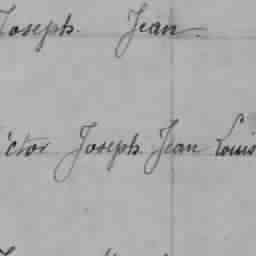 Joseph. Jean.
ictor Joseph Jean Louis